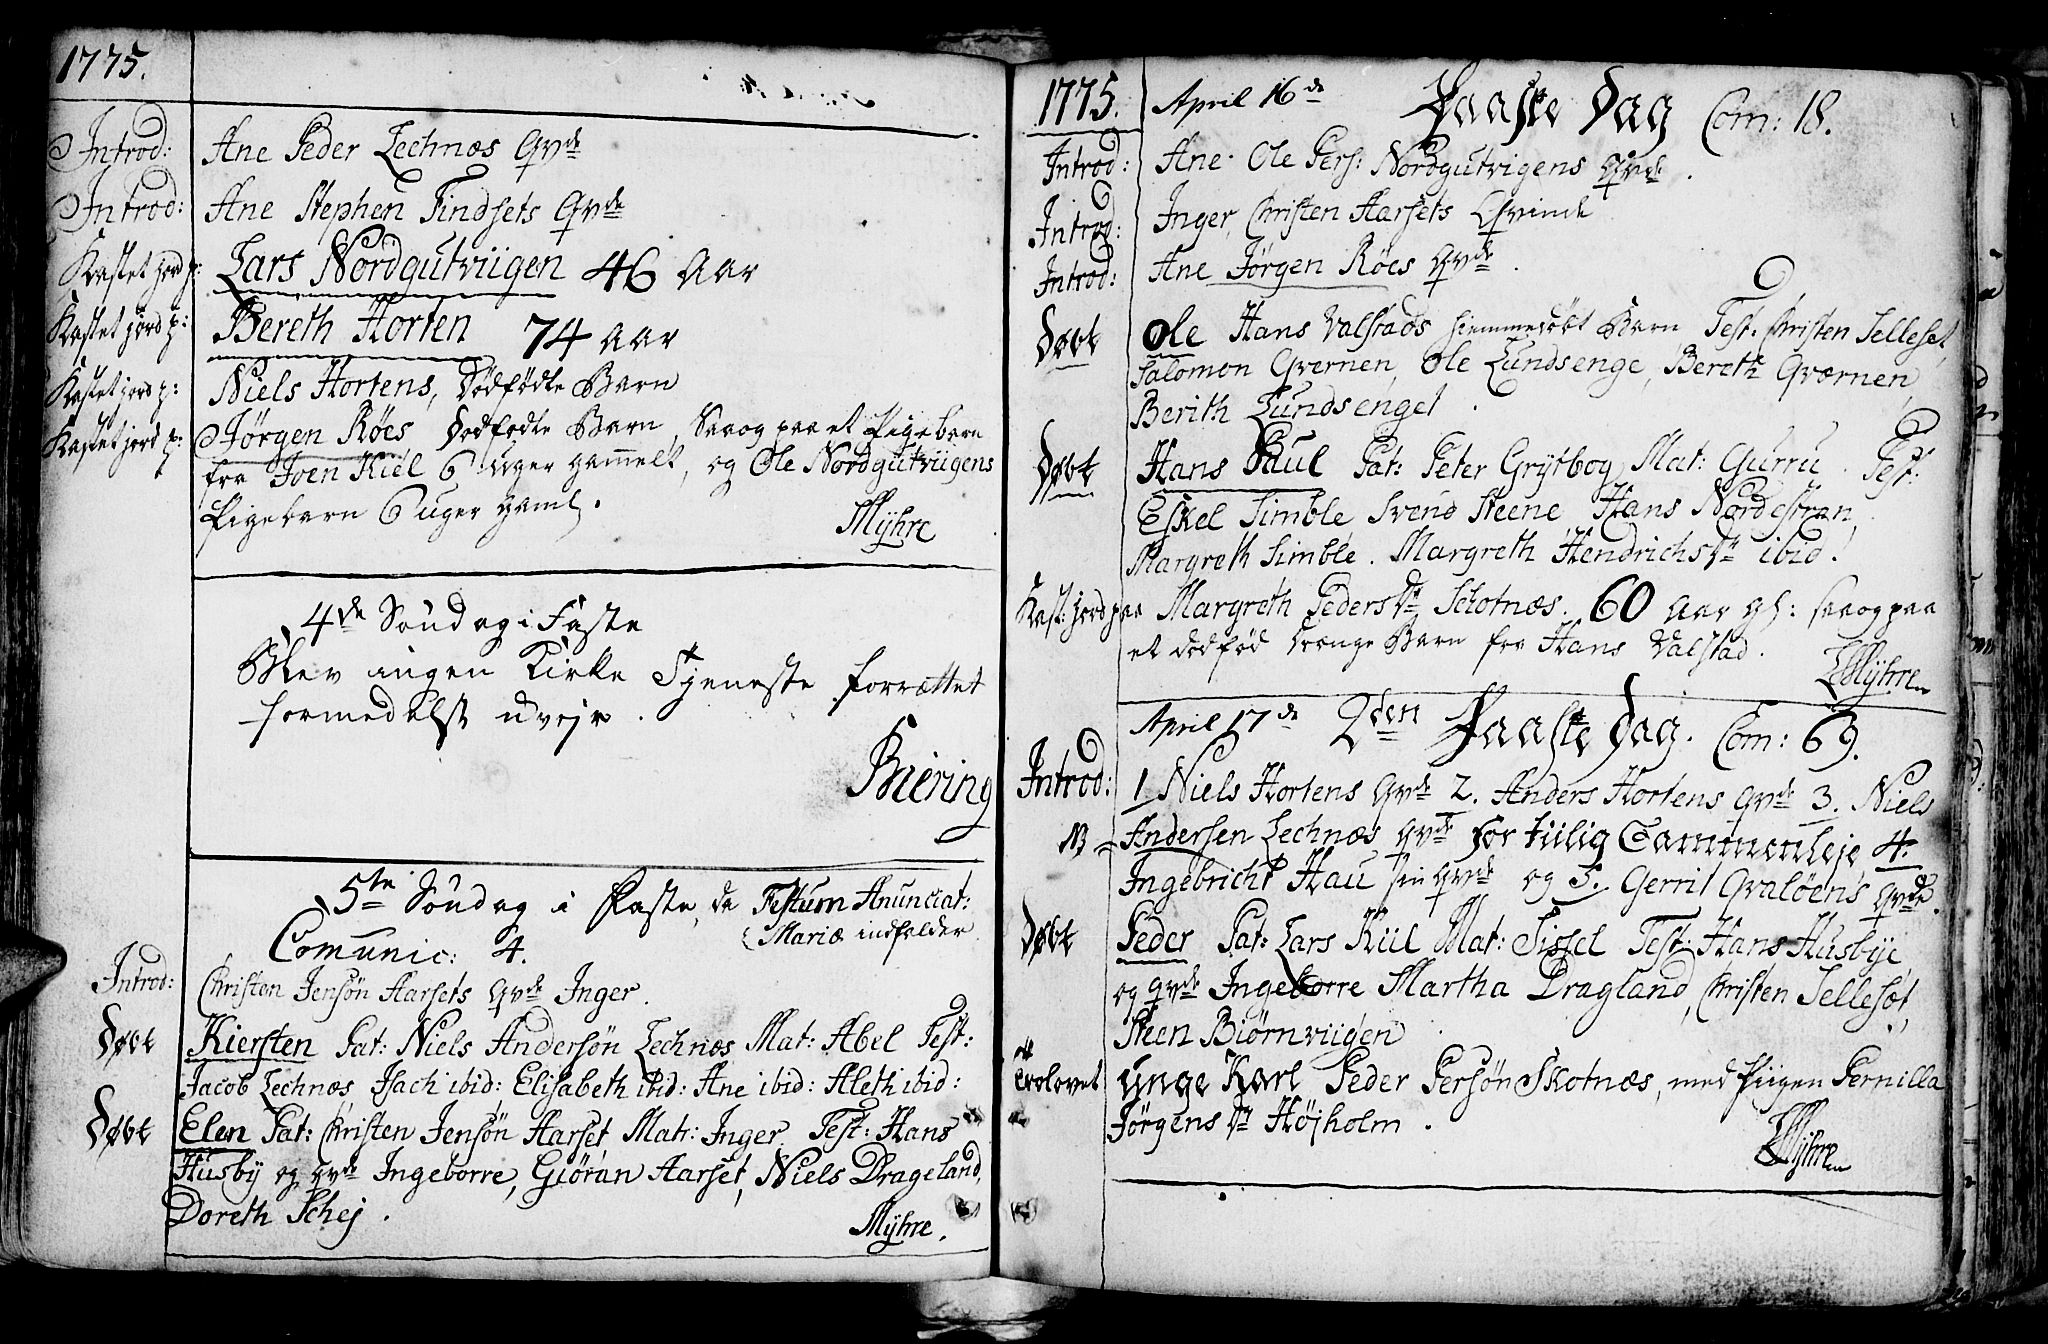 1775.
Introd: Ane Peder Lechnæs Qvde
Introd: Ane Stephen Findsets Qvde
Kastet jord p: Lars Nordgutviigen 46 Aar
Kastet jord p: Bereth Horten 74 Aar
Kastet jord p: Niels Hortens, Dödfödte Barn
Kastet jord p: Jörgen Röes Dödfödte Barn, Saaog paa et Pigebarn
fra Joen Kiel 6 Uger gammelt, og Ole Nordgutviigens
Pigebarn 6 uger gaml.
Mÿhre
4de Söndag i Faste
Blev ingen Kirke Tjeneste forrættet
formedelst uvejr.
Biering
5te Söndag i Faste, da Festum Anunciat:
Mariæ indfalder
Comunic: 4.
Introd: Christen Jensön Aarsets Qvde Inger.
Döbt Kiersten Pat: Niels Andersön Lechnæs Mat: Abel Test:
Jacob Lechnæs, Isach ibid: Elisabeth ibid: Ane ibid: Aleth ibid:
Döbt Elen Pat: Christen Jensön Aarset Matr: Inger. Test: Hans
Husby og Qvde Ingeborre, Giöran Aarset, Niels Drageland,
Doreth Schej.
Mÿhre.
1775. April 16de Paaske Dag Com: 18.
Introd: Ane Ole Pers: Nordgutvigens Qvde.
Introd: Inger, Christen Aarsets Qvinde
Introd: Ane Jörgen Röes Qvde.
Döbt Ole Hans Valstads hiemmedöbt Barn Test: Christen Selleset,
Salomon Qvernen, Ole Lundsenge, Bereth Qværnen,
Berith Lundsenget.
Döbt Hans Paul Pat: Peter Grÿtbog, Mat: Gurru. Test:
Eskel Simble Svend Steene, Hans Nordestran,
Margreth Simble. Margreth Hendrichsdr ibid.
Kast: jord paa Margreth Pedersdr Schotnæs. 60 Aar gl: saaog paa
et dödföd Drænge Barn fra Hans Valstad.
Mÿhre
April 17de 2den Paaske Dag. Com: 69.
Introd: 1 Niels Hortens Qvde 2. Anders Hortens Qvde 3. Niels
NB = Andersen Lechnæs Qvde for tiilig Sammenleje, 4.
Ingebricht Hau sin Qvde og 5. Gerrit Qvalöens Qvde.
Döbt Peder Pat: Lars Kiil Mat: Sissel Test: Hans Husbÿe
og Qvde Ingeborre Martha Dragland, Christen Sellesæt,
Steen Biörnviigen.
Trolovet Unge Karl Peder Persön Skotnæs, med Piigen Pernilla
Jörgensdr Höjholm.
Mÿhre